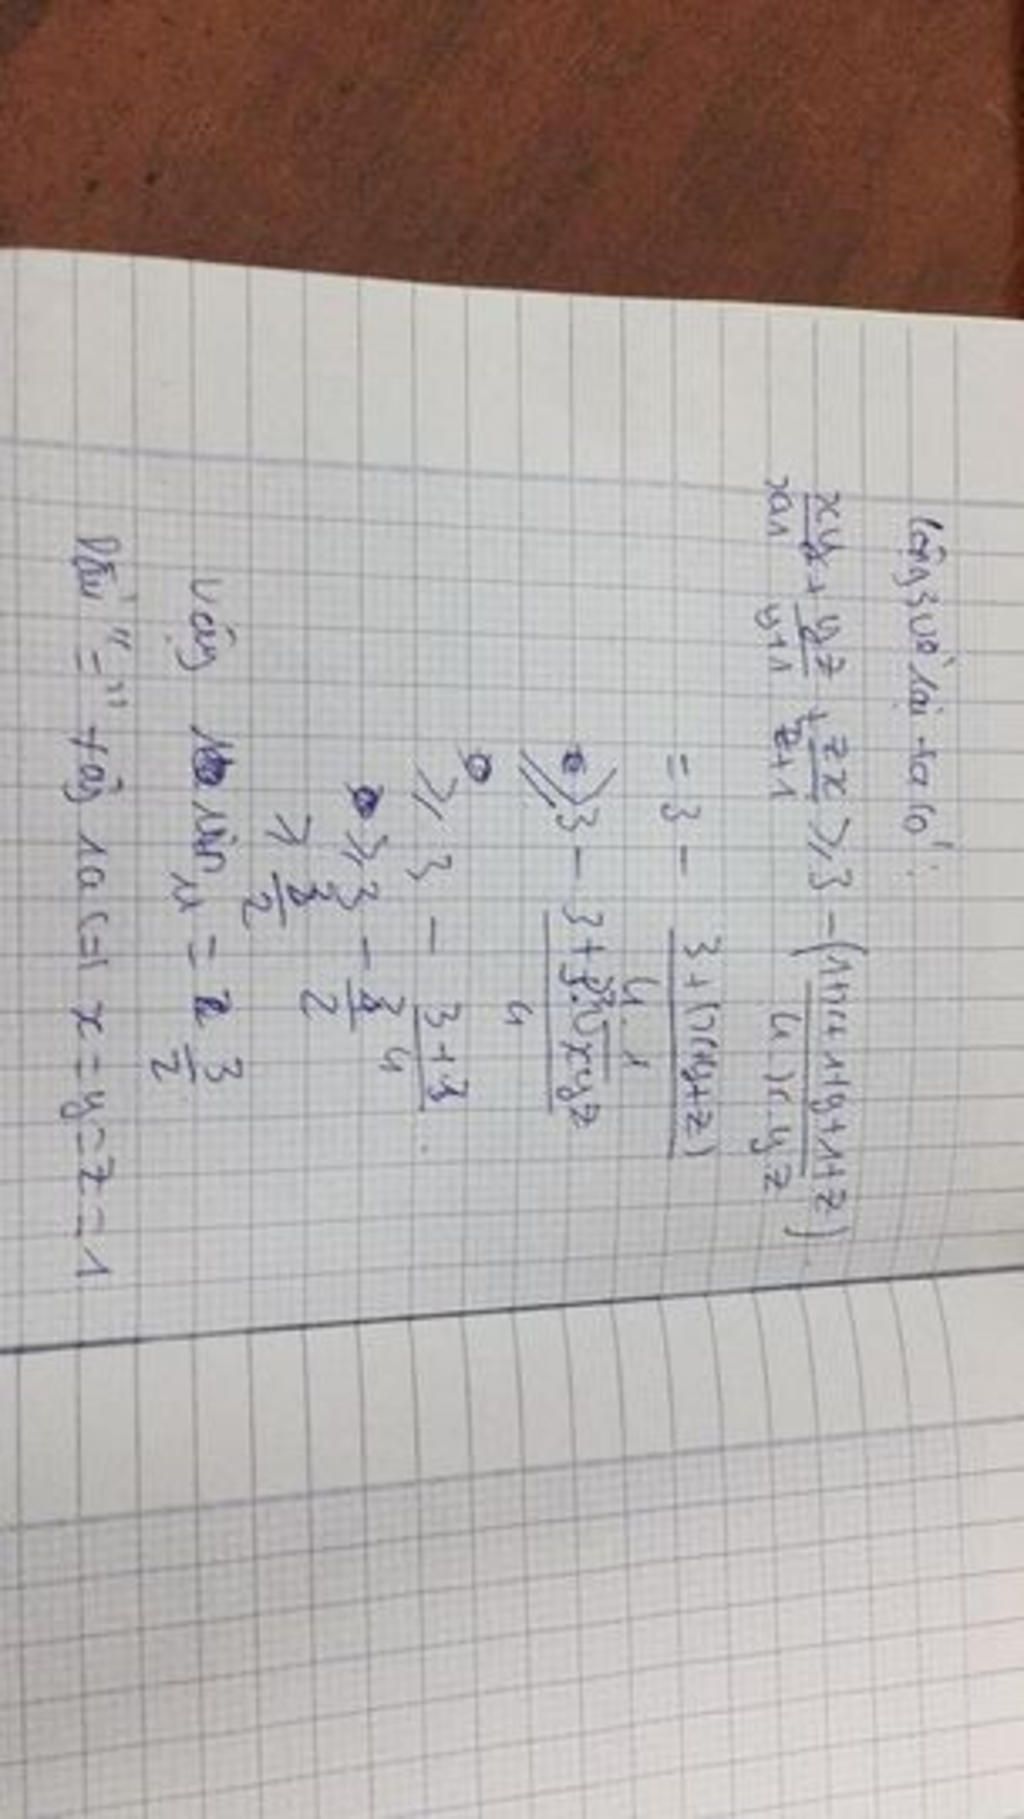 Cộng 3 vế lại ta có:
xy/x+1 + yz/y+1 + zx/z+1 ≥ 3 - (1+x+1+y+1+z / 4.x.y.z)
= 3 - 3+(x+y+z) / 4.1
≥ 3 - 3+3.∛xyz / 4
≥ 3 - 3+3 / 4
≥ 3 - 3/2
≥ 3/2
Vậy Min M = 3/2
Dấu "=" xảy ra <=> x=y=z=1